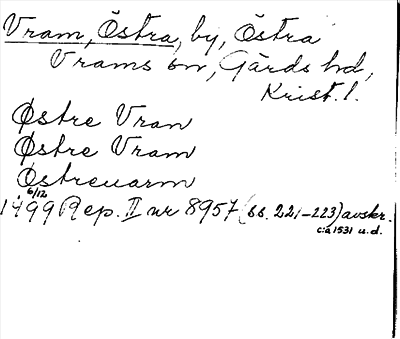 Vram, Östra, by, Östra
Vrams sn, Gärds hd,
Krist. l.
Østre Vran
Østre Vram
Østreuarm
6/12
1499 Rep. II nr 8957 (ss. 221-223) avskr.
c:a 1531 u.d.